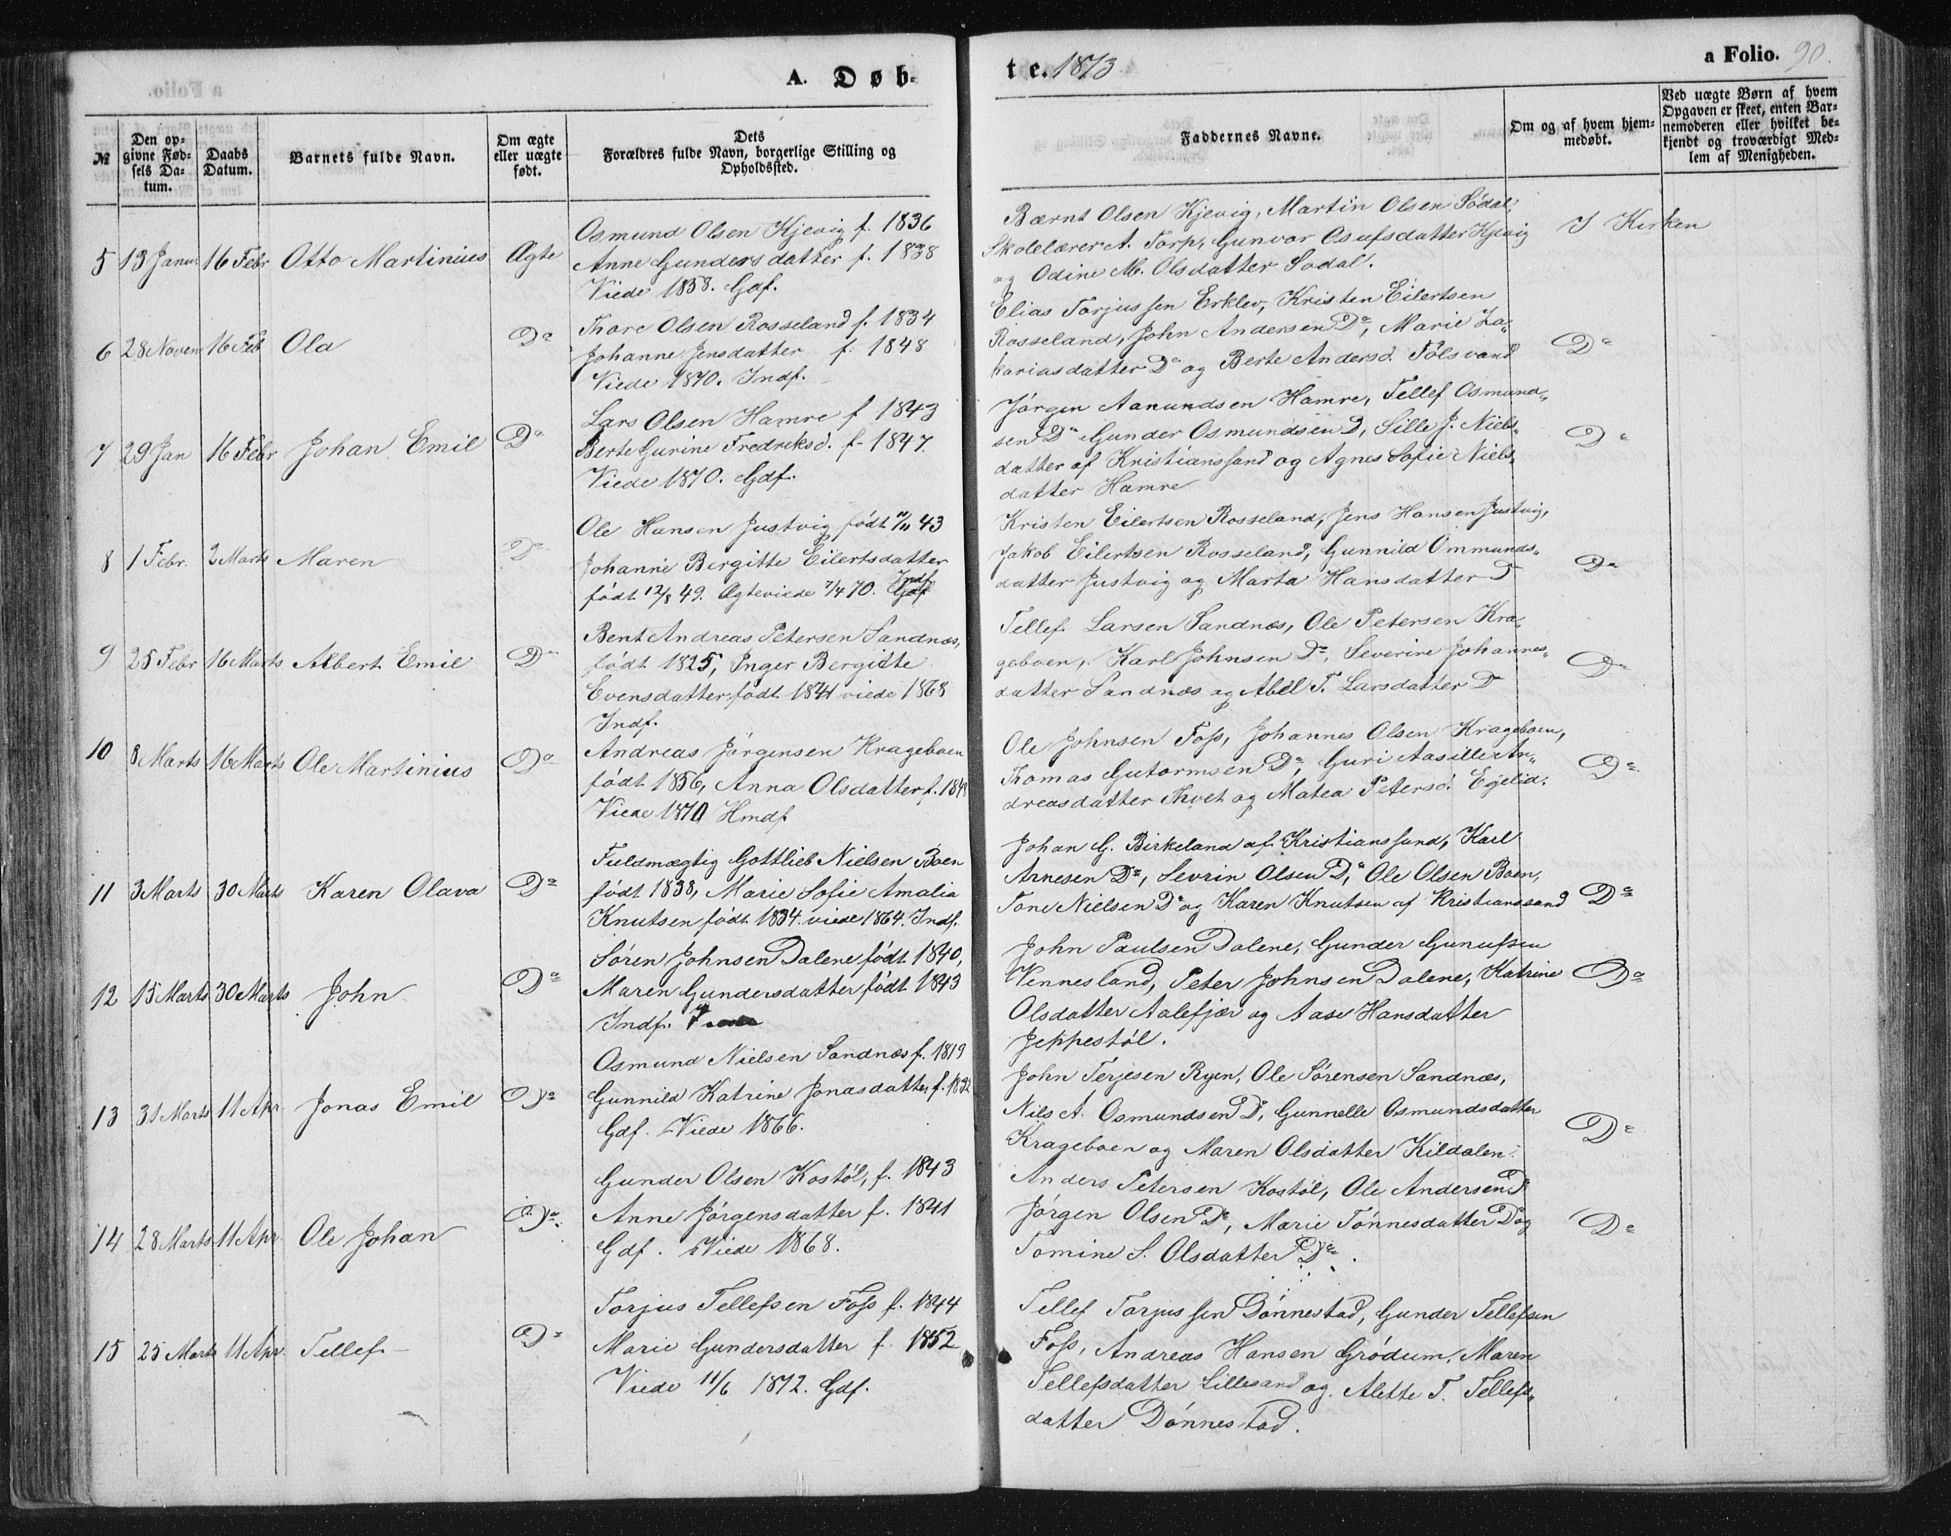 a Folio.
A. Døb-
te. 1873.
a Folio. 90.
№
Den op-
givne Fød-
sels Da-
tum.
Daabs
Datum.
Barnets fulde Navn.
Om ægte
eller uægte
født.
Dets
Forældres fulde Navn, borgerlige Stilling og
Opholdssted.
Faddernes Navne.
Om og af hvem hjem-
medøbt.
Ved uægte Børn af hvem
Opgaven er skeet, enten Bar-
nemoderen eller hvilket be-
kjendt og troværdigt Med-
lem af Menigheden.
5 13 Janu: 16 Febr Otto Martinius Ægte
Osmund Olsen Kjevig f. 1836
Anne Gundersdatter f. 1838
Viede 1858. Gdf.
Bærnt Olsen Kjevig, Martin Olsen Södal,
Skolelærer A. Torp, Gunvor Osufsdatter Kjevig
og Odine M. Olsdatter Sodal.
I Kirken
6 28 Novem 16 Feb Ola Do
Thore Olsen Rosseland f. 1834
Johanne Jensdatter f. 1848
Viede 1870. Indf.
Elias Torjussen Erklev, Kristen Eilertsen
Rosseland, John Andersen Do, Marie Za-
kariasdatter Do og Berte Andersd. Fölsvand
Do
7 29 Jan 16 Febr Johan Emil Do
Lars Olsen Hamre f 1843
Berte Gurine Fredriksd. f. 1847.
Viede 1870. Gdf.
Jörgen Aanundsen Hamre, Tellef Osmund-
sen Do Gunder Osmundsen D, Sille J. Niels-
datter af Kristianssand og Agnes Sofie Niels-
datter Hamre
Do
8 1 Febr. 2 Marts Maren Do
Ole Hansen Justvig födt 7/11 43
Johanne Bergitte Eilertsdatter
födt 12/8 49. Ægteviede 7/4 70. Indf
Gdf
Kristen Eilertsen Rosseland, Jens Hansen Justvig,
Jakob Eilertsen Rosseland, Gunnild Ommunds-
datter Justvig og Marta Hansdatter D
Do
9 25 Febr 16 Marts Albert Emil Do
Bent Andreas Petersen Sandnæs,
födt 1825, Inger Bergitte
Evensdatter, födt 1841 viede 1868
Indf.
Tellef Larsen Sandnæs, Ole Petersen Kra-
geboen, Karl Johnsen Do, Severine Johannes-
datter Sandnæs og Abel T. Larsdatter D
Do
10 8 Marts 16 Marts Ole Martinius Do
Andreas Jörgensen Krageboen
födt 1836, Anna Olsdatter f. 1849
Viede 1870 Hmdf
Ole Johnsen Foss, Johannes Olsen Krageboen,
Thomas Gutormsen Do, Guri Aasille An-
dreasdatter Kvet og Matea Petersd. Egelid.
Do
11 3 Marts 30 Marts Karen Olava Do
Fuldmægtig Gottlieb Nielsen Boen
födt 1838, Marie Sofie Amalia
Knutsen, födt 1834. viede 1864. Indf.
Johan G. Birkeland af Kristianssand, Karl
Arnesen Do, Sevrin Olsen D, Ole Olsen Boen,
Tone Nielsen Do og Karen Knutsen af Kristianssand
Do
12 15 Marts 30 Marts John Do
Sören Johnsen Dalene födt 1840,
Maren Gundersdatter födt 1843
Indf.
John Paulsen Dalene, Gunder Gunufsen
Vennesland, Peter Johnsen Dalene, Katrine
Olsdatter Aalefjær og Aase Hansdatter
Jeppestöl.
Do
13 31 Marts 11 Apr. Jonas Emil Do
Osmund Nielsen Sandnæs f. 1819
Gunnild Katrine Jonasdatter f. 1832
Gdf. Viede 1866.
John Terjesen Ryen, Ole Sörensen Sandnæs,
Nils A. Osmundsen D, Gunnelle Osmundsdatter
Krageboen og Maren Olsdatter Kildalen.
Do
14 28 Marts 11 Apr. Ole Johan Do
Gunder Olsen Kostöl, f. 1843
Anne Jörgensdatter f. 1841
Gdf. Viede 1868.
Anders Petersen Kostöl, Ole Andersen D
Jörgen Olsen Do, Marie Tönnesdatter D og
Tomine S. Olsdatter Do.
Do
15 25 Marts 11 Apr. Tellef Do
Torjus Tellefsen Foss f. 1844
Marie Gundersdatter f. 1852
Viede 11/6 1872. Gdf.
Tellef Torjussen Dönnestad, Gunder Tellefsen
Foss, Andreas Hansen Grödum, Maren
Tellefsdatter Lillesand og Alette T. Tellefs-
datter Dönnestad.